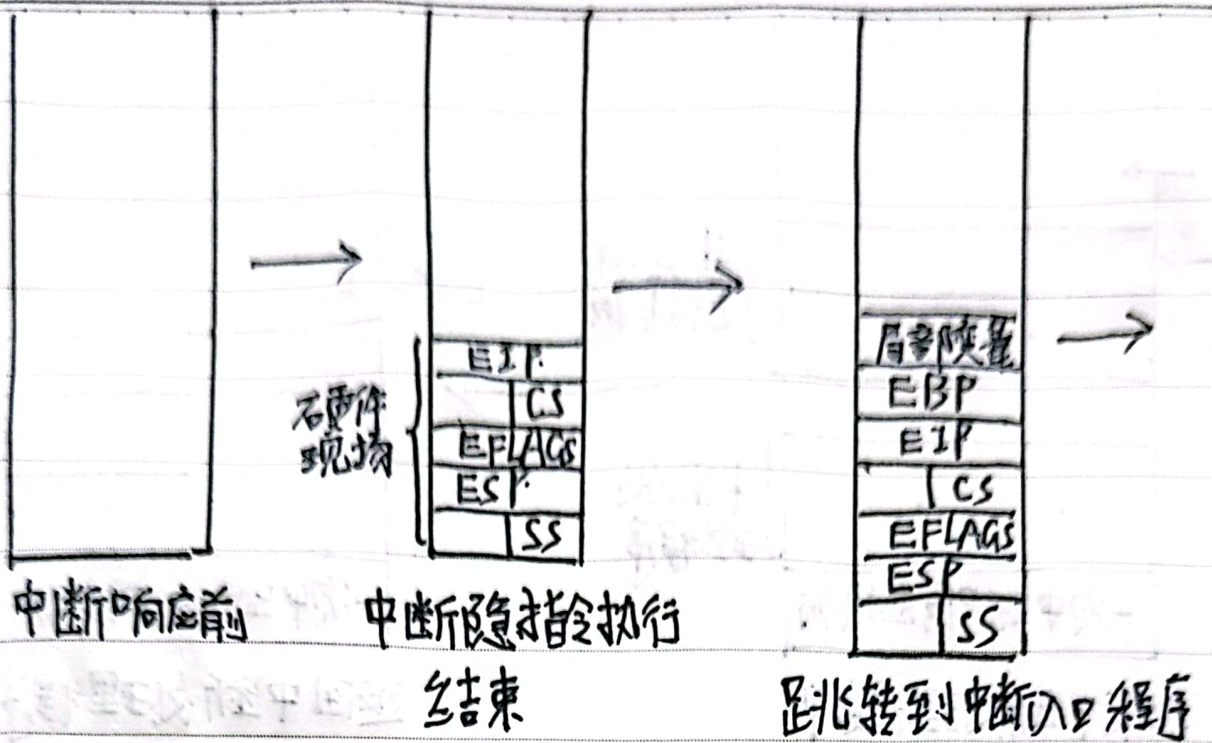 中断响应前
硬件
现场
EIP
CS
EFLAGS
ESP
SS
中断隐指令执行
结束
局部变量
EBP
EIP
CS
EFLAGS
ESP
SS
跳转到中断入口程序